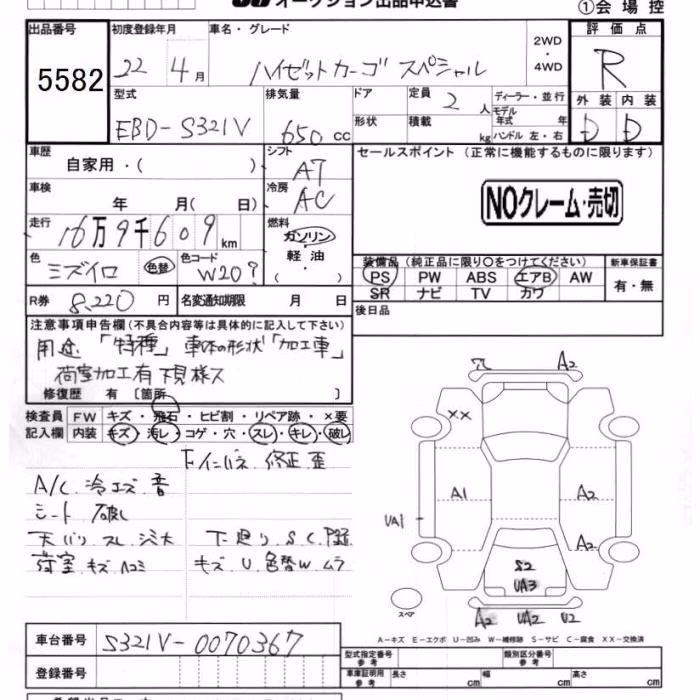 オークション出品申込書
①会場控
出品番号 初度登録年月 車名・グレード 評価点
5582 22年 4月 ハイゼットカーゴ スペシャル 2WD・4WD R
型式 排気量 ドア 定員 ディーラー・並行 外装 内装
EBD-S321V 650cc 2人 モデル年式 年 D D
形状 積載 kg ハンドル 左・右
車歴 シフト セールスポイント (正常に機能するものに限ります)
自家用・( ) AT
車検 冷房 NOクレーム・売切
年 月( 日) AC
走行 燃料
16万9千609km ガソリン
軽油
( )
色 色替 色コード 装備品 (純正品に限り○をつけてください) 新車保証書
ミズイロ W20? PS PW ABS エアB AW 有・無
SR ナビ TV カワ
R券 8,220円 名変通知期限 月 日 後日品
注意事項申告欄(不具合内容等は具体的に記入して下さい)
用途「特種」車体の形状「加工車」
荷室加工有 下見様ス
修復歴 有〔箇所 〕
検査員 FW キズ・飛石・ヒビ割・リペア跡・×要
記入欄 内装 キズ・汚レ・コゲ・穴・スレ・キレ・破レ
修正 歪
A/C 冷エズ 音
シート 破レ
天バリ スレ シミ大
下廻り S C
荷室 キズ ヘコミ キズ U 色替W ムラ
穴 A2
XX
A1 A2
UA1
A2
S2
UA3
スペア A2 UA2 U2
A-キズ E-エクボ U-凹み W-補修跡 S-サビ C-腐食 XX-交換済
車台番号 S321V-0070367
型式指定番号 参考 類別区分番号 参考
登録番号 車庫証明用 参考 長さ cm 幅 cm 高さ cm